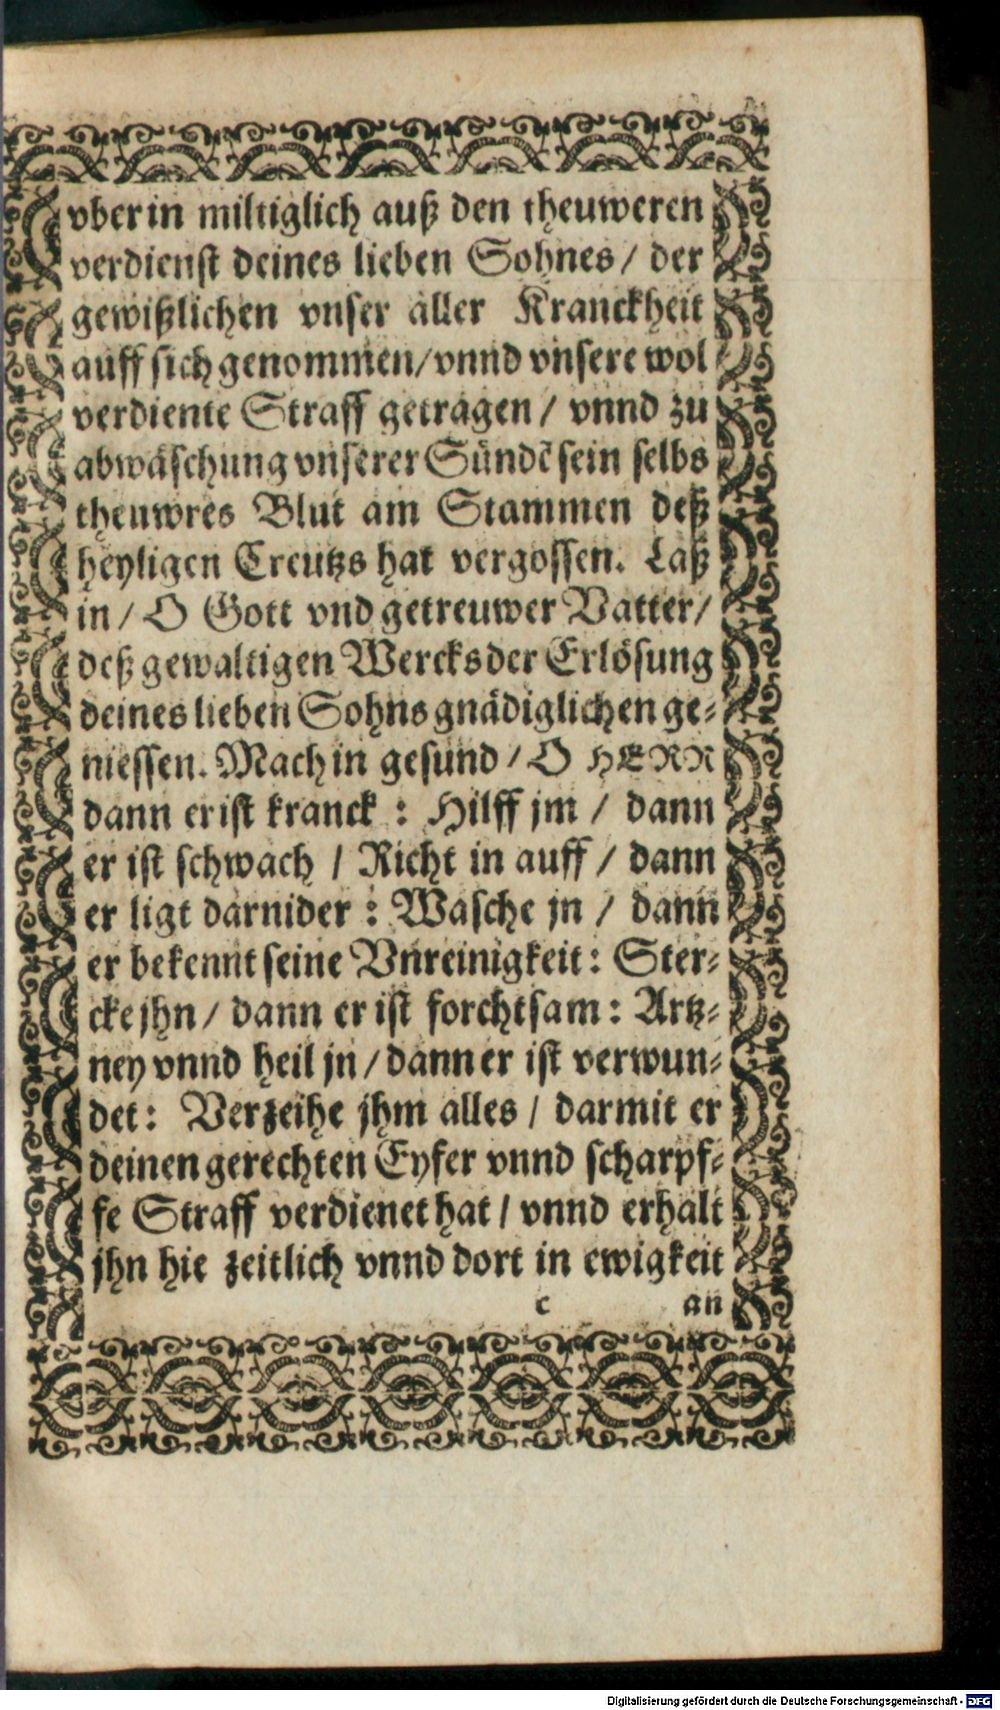 vber in miltiglich auß den theuweren
verdienst deines lieben Sohnes / der
gewißlichen vnser aller Kranckheit
auff sich genommen / vnnd vnsere wol
verdiente Straff getragen / vnnd zu
abwäschung vnserer Sündẽ sein selbs
theuwres Blut am Stammen deß
heyligen Creutzs hat vergossen. Laß
in / O Gott vnd getreuwer Vatter /
deß gewaltigen Wercks der Erlösung
deines lieben Sohns gnädiglichen ge-
niessen. Mach in gesund / O HERR
dann er ist kranck : Hilff jm / dann
er ist schwach / Richt in auff / dann
er ligt darnider : Wasche jn / dann
er bekennt seine Vnreinigkeit : Ster-
cke jhn / dann er ist forchtsam : Artz-
ney vnnd heil jn / dann er ist verwun-
det : Verzeihe jhm alles / darmit er
deinen gerechten Eyfer vnnd scharpf-
fe Straff verdienet hat / vnnd erhalt
jhn hie zeitlich vnnd dort in ewigkeit
c an
Digitalisierung gefördert durch die Deutsche Forschungsgemeinschaft - DFG